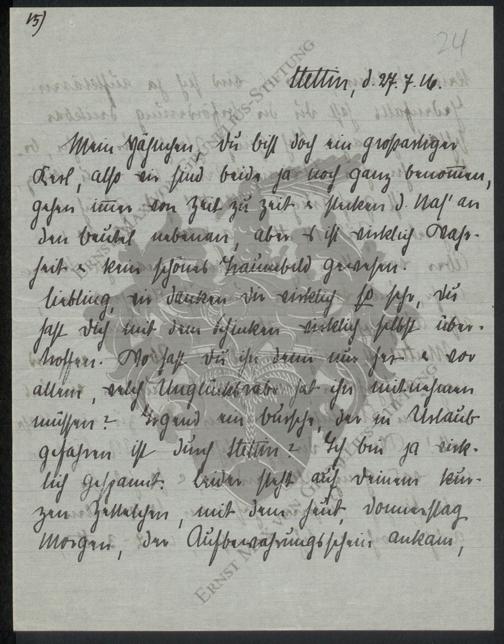 15)
24
Stettin, d. 27.7.16.
Mein Hähnchen, du bist doch ein großartiger
Kerl, also wir sind beide ja noch ganz benommen,
gehen immer von Zeit zu Zeit & stecken d. Nas' an
den Beutel nebenan, aber s' ist wirklich Wahr-
heit & kein schönes Traumbild gewesen.
Liebling, wir danken dir wirklich so sehr, du
hast dich mit dem Schinken wirklich selbst über-
troffen. Wo hast du ihn denn nur her & vor
allem, welch Unglücksrabe hat ihn mitnehmen
müssen? Irgend ein Bursche, der in Urlaub
gefahren ist durch Stettin? Ich bin ja wirk-
lich gespannt. Leider steht auf deinem kur-
zen Zettelchen, mit dem heut, Donnerstag
Morgen, der Aufbewahrungsschein ankam,
ERNST MAX VON GRUNELIUS-STIFTUNG
ERNST MAX VON GRUNELIUS-STIFTUNG